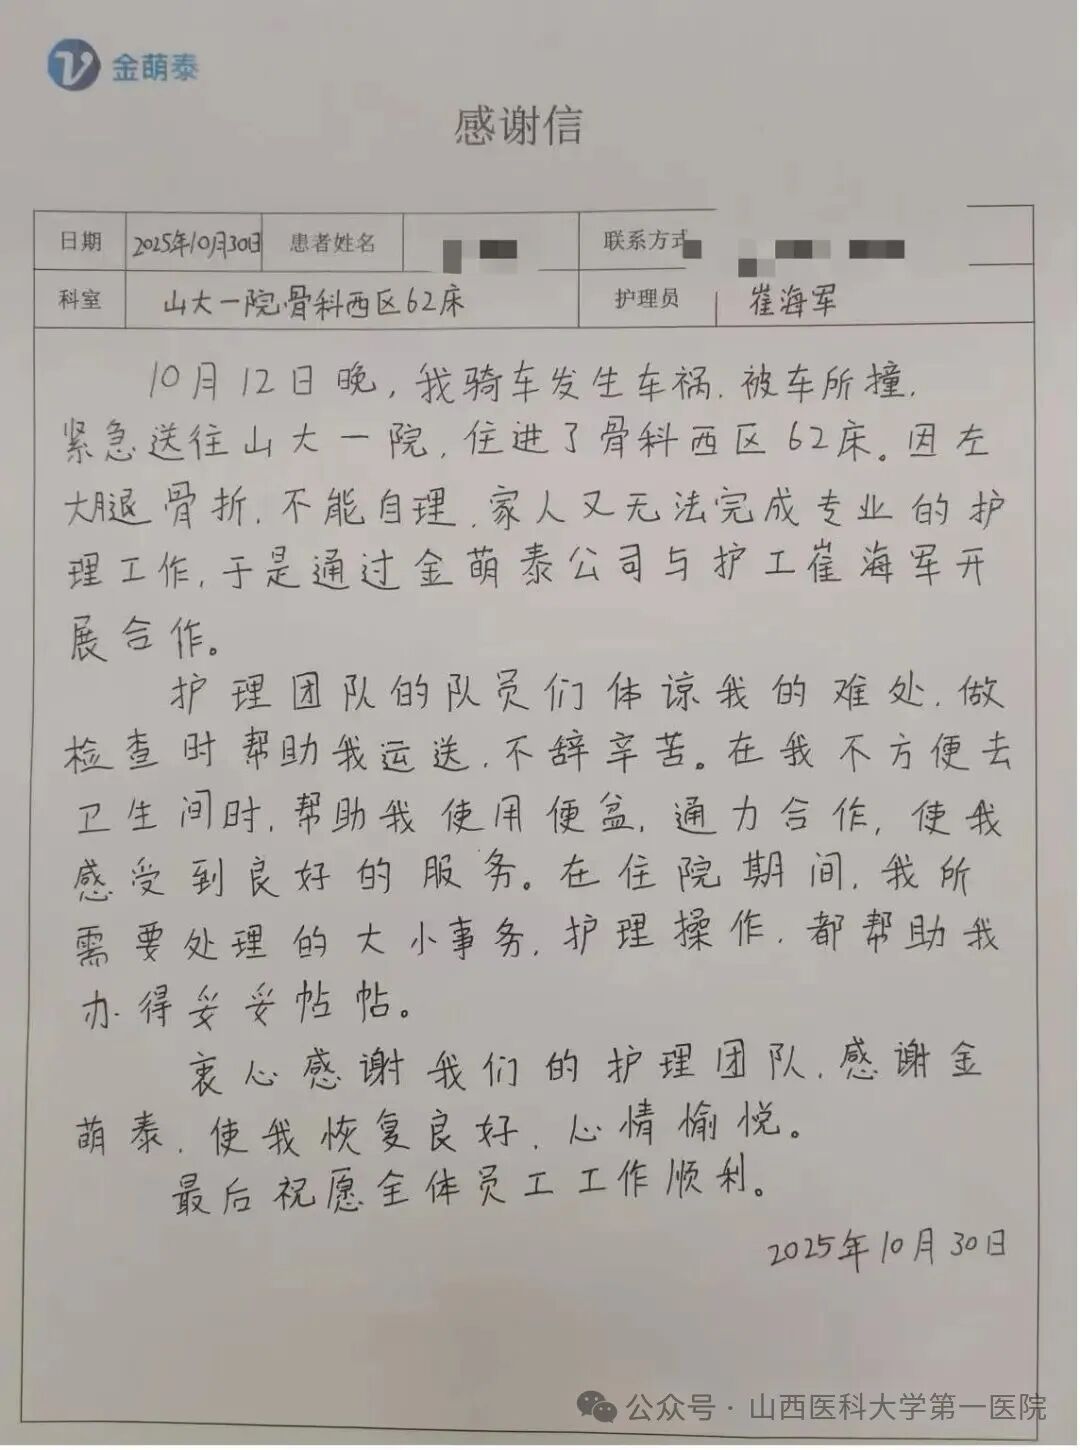 金萌泰
感谢信
日期 2025年10月30日 患者姓名 联系方式
科室 山大一院骨科西区62床 护理员 崔海军
10月12日晚，我骑车发生车祸，被车所撞，
紧急送往山大一院，住进了骨科西区62床。因左
大腿骨折，不能自理，家人又无法完成专业的护
理工作，于是通过金萌泰公司与护工崔海军开
展合作。
护理团队的队员们体谅我的难处，做
检查时帮助我运送，不辞辛苦。在我不方便去
卫生间时，帮助我使用便盆，通力合作，使我
感受到良好的服务。在住院期间，我所
需要处理的大小事务，护理操作，都帮助我
办得妥妥帖帖。
衷心感谢我们的护理团队，感谢金
萌泰，使我恢复良好，心情愉悦。
最后祝愿全体员工工作顺利。
2025年10月30日
公众号·山西医科大学第一医院